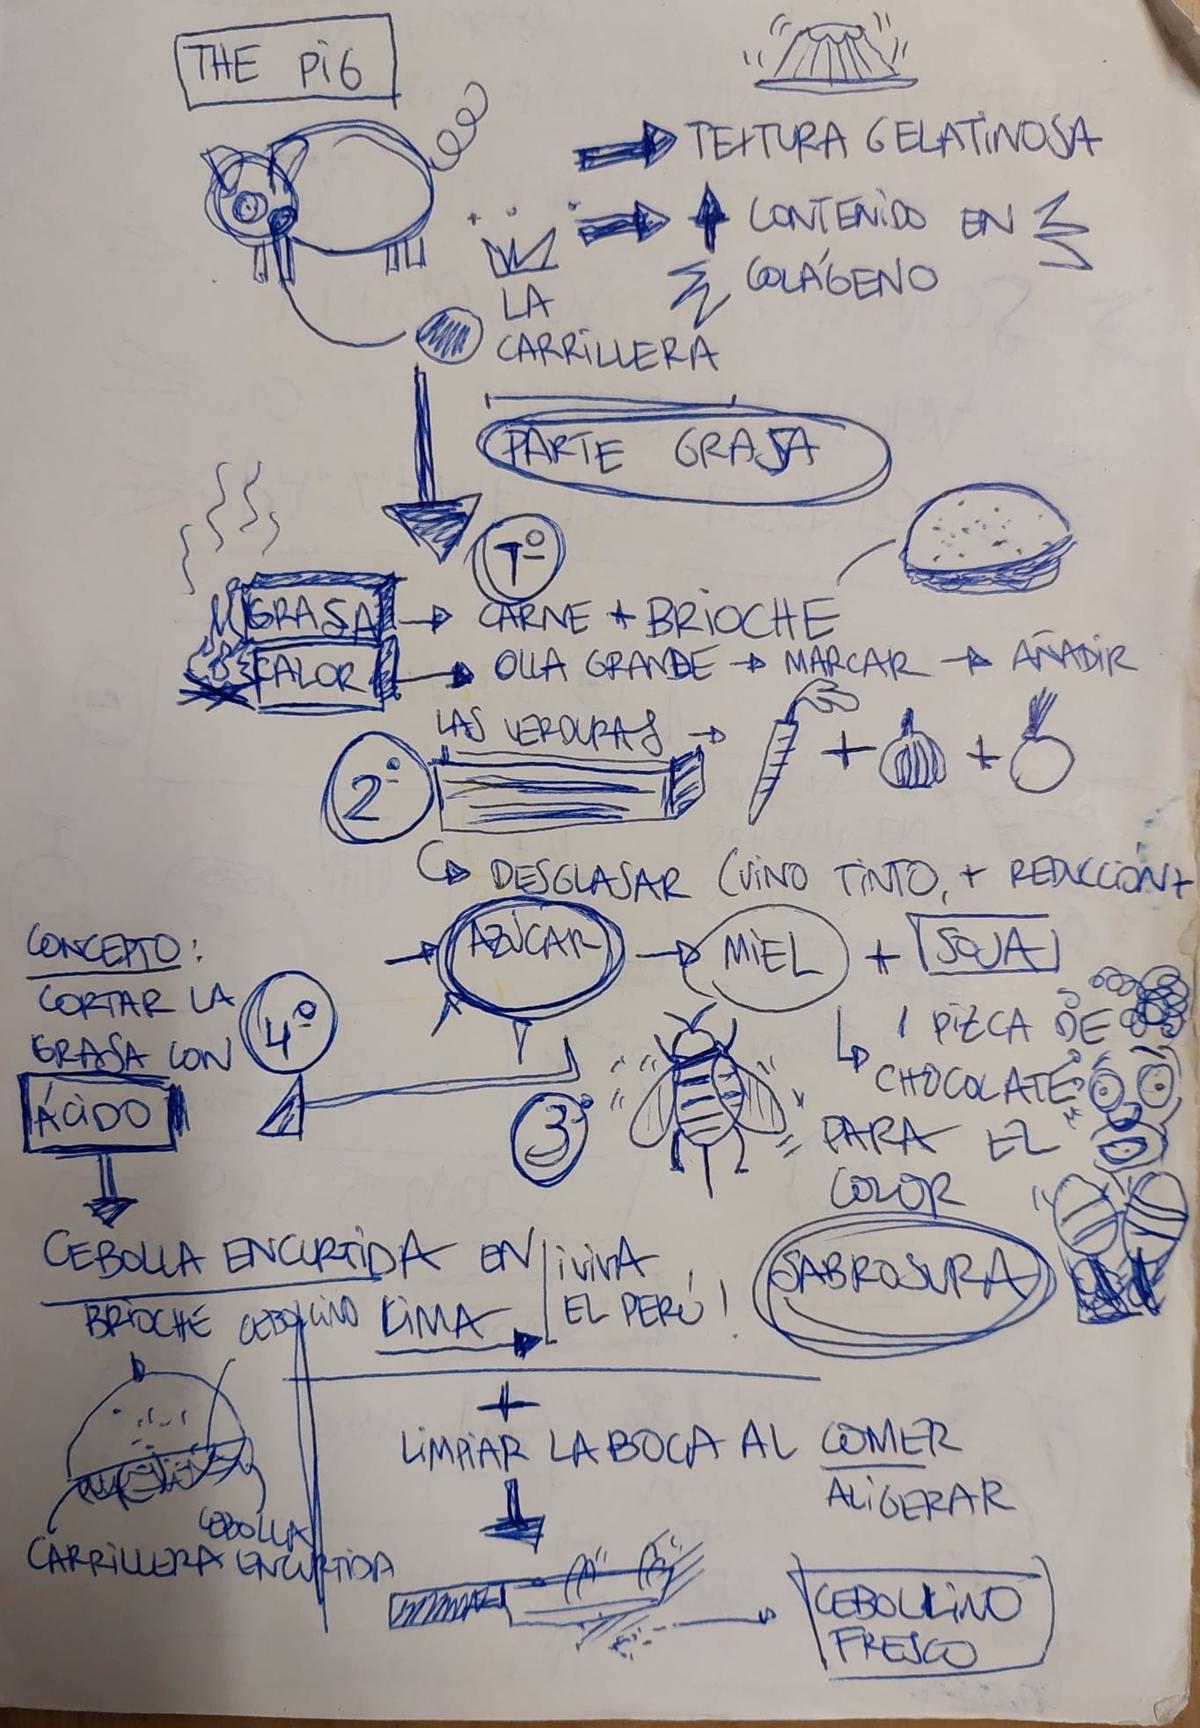 THE PIG
TEXTURA GELATINOSA
CONTENIDO EN
COLÁGENO
LA
CARRILLERA
PARTE GRASA
1º
GRASA → CARNE + BRIOCHE
CALOR → OLLA GRANDE → MARCAR → AÑADIR
LAS VERDURAS → + +
2º
DESGLASAR (VINO TINTO, + REDUCCIÓN +
→ AZÚCAR → MIEL + SOJA
3º
1 PIZCA DE
CHOCOLATE
PARA EL
COLOR
SABROSURA
4º
CONCEPTO:
CORTAR LA
GRASA CON
ÁCIDO
CEBOLLA ENCURTIDA EN
LIMA
¡VIVA
EL PERÚ!
BRIOCHE CEBOLLINO
CEBOLLA
CARRILLERA ENCURTIDA
+
LIMPIAR LA BOCA AL COMER
ALIGERAR
CEBOLLINO
FRESCO